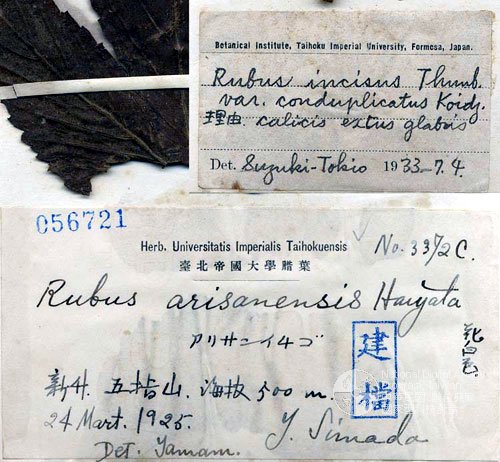 Botanical Institute, Taihoku Imperial University, Formosa, Japan.
Rubus incisus Thunb.
var. conduplicatus Koidz.
理由 calicis extus glabris
Det. Suzuki-Tokio 1933-7.4.
056721
Herb. Universitatis Imperialis Taihokuensis
No. 3372C.
臺北帝國大學腊葉
Rubus arisanensis Hayata
アリサンイチゴ
建檔
新竹 五指山 海拔 500 m.
24 Mart. 1925.
Y. Simada
Det. Yamam.